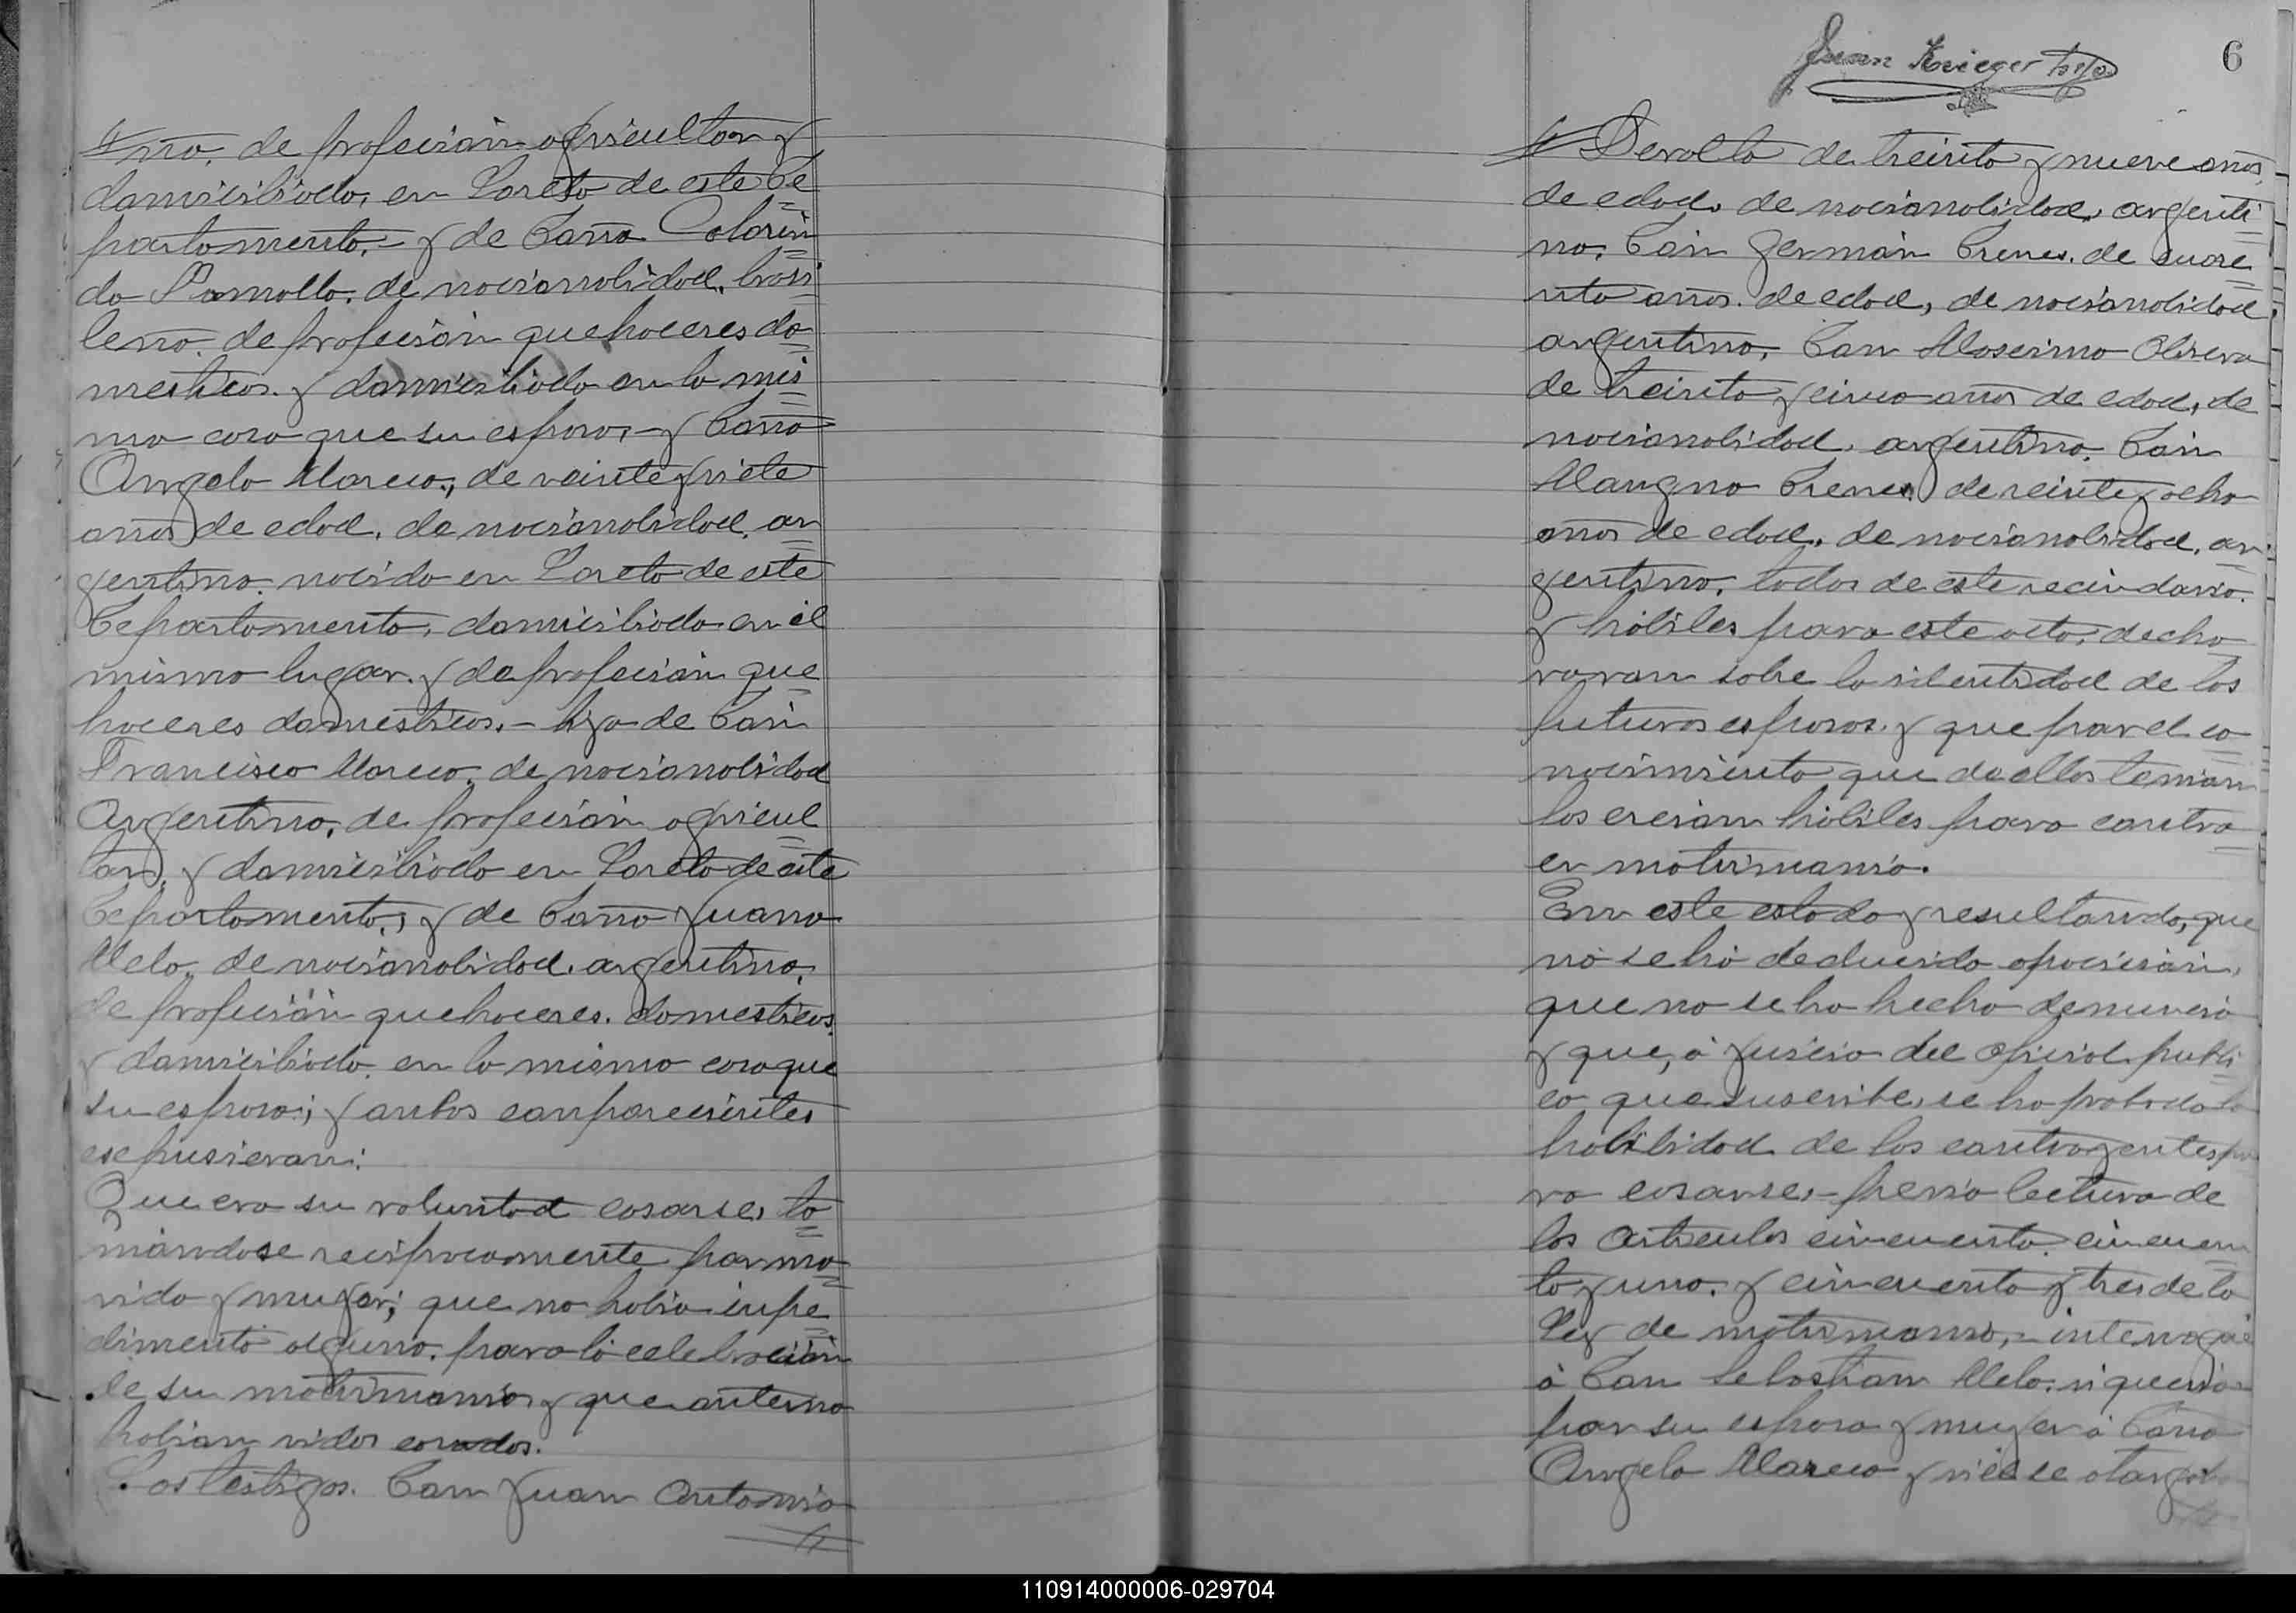 no. de profecion agricultor y
domiciliado, en Loreto de este De
partamento,- y de Doña Colorin
da Ramallo, de nacionalidad, brasi
leña. de profecion quehaceres do
mesticos. y domiciliada en la mis
ma casa que su esposo,- y Doña
Angela Mareco, de veinte y siete
años de edad, de nacionalidad, ar
gentina. nacida en Loreto de este
Departamento, domiciliada en el
mismo lugar. y de profecion que
haceres domesticos.- hija de Don
Francisco Mareco, de nacionalidad
Argentino, de profecion agricul
tor, y domiciliado en Loreto de este
Departamento, y de Doña Juana
Melo, de nacionalidad, argentina,
de profecion quehaceres. domesticos,
y domiciliada, en la misma casa que
su esposo; y ambos comparecientes
expusieron:
Que era su voluntad casarse, to
mandose reciprocamente por ma
rido y mujer; que no habia inpe
dimento alguno. para la celebracion
de su matrimonio y que antes no
habian sidos casados.
Los testigos. Don Juan Antonio
Juan Krieger hijo
6
de treinta y nueve años,
de edad, de nacionalidad, argenti
no, Don German Brenes, de cuare
nta años. de edad, de nacionalidad
argentino, Don Maximo Olivera
de treinta y cinco años de edad, de
nacionalidad, argentino, Don
Mangno Brenes, de veinte y ocho
años de edad, de nacionalidad, ar
gentino, todos de este vecindario.
y hábiles para este acto, decla
raron sobre la identidad de los
futuros esposos. y que por el co
nocimiento que de ellos tenian
los creian hábiles para contra
er matrimonio.
En este estado y resultando, que
no se há deducido oposicion,
que no se ha hecho denuncia
y que, á juicio del oficial publi
co que suscribe, se ha probado la
habilidad de los contrayentes pa
ra casarse,- previa lectura de
los Articulos cincuenta, cincuen
ta y uno, y cincuenta y tres de la
Ley de matrimonio,- interrogué
á Don Sebastian Melo, si queria
por su esposa y mujer á Doña
Angela Mareco y si